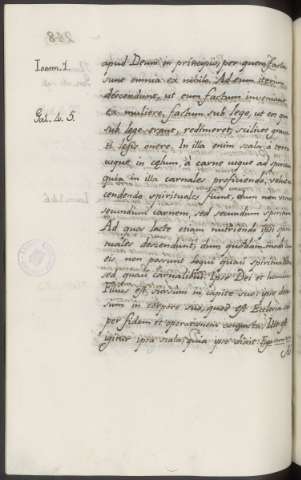 Ioann. 1.
Gal. 4. 5.
apud Deum in principio, per quem facta
sunt omnia ex nihilo. Ad eum iterum
descendunt, ut eum factum inveniant
ex muliere, factum sub lege, ut eos qui
sub lege erant, redimeret, scilicet gravi
legis onere. In illa enim scala, a terra
usque in cœlum, a carne usque ad spiritum
quia in illa carnales proficiendo, velut as
cendendo spirituales fiunt, dum non vivunt
secundum carnem, sed secundum spiritum
Ad quos lacte etiam nutriendos ipsi spiri
tuales descendunt, dum quodammodo
eis non possunt loqui quasi spiritualibus
sed quasi carnalibus. Ipse Dei et hominis
Filius est, sursum in capite suo; ipse deor
sum in corpore suo, quod est Ecclesia
per fidem et operationem Ipse est
igitur ipsa scala; quia ipse dixit: Ego sum